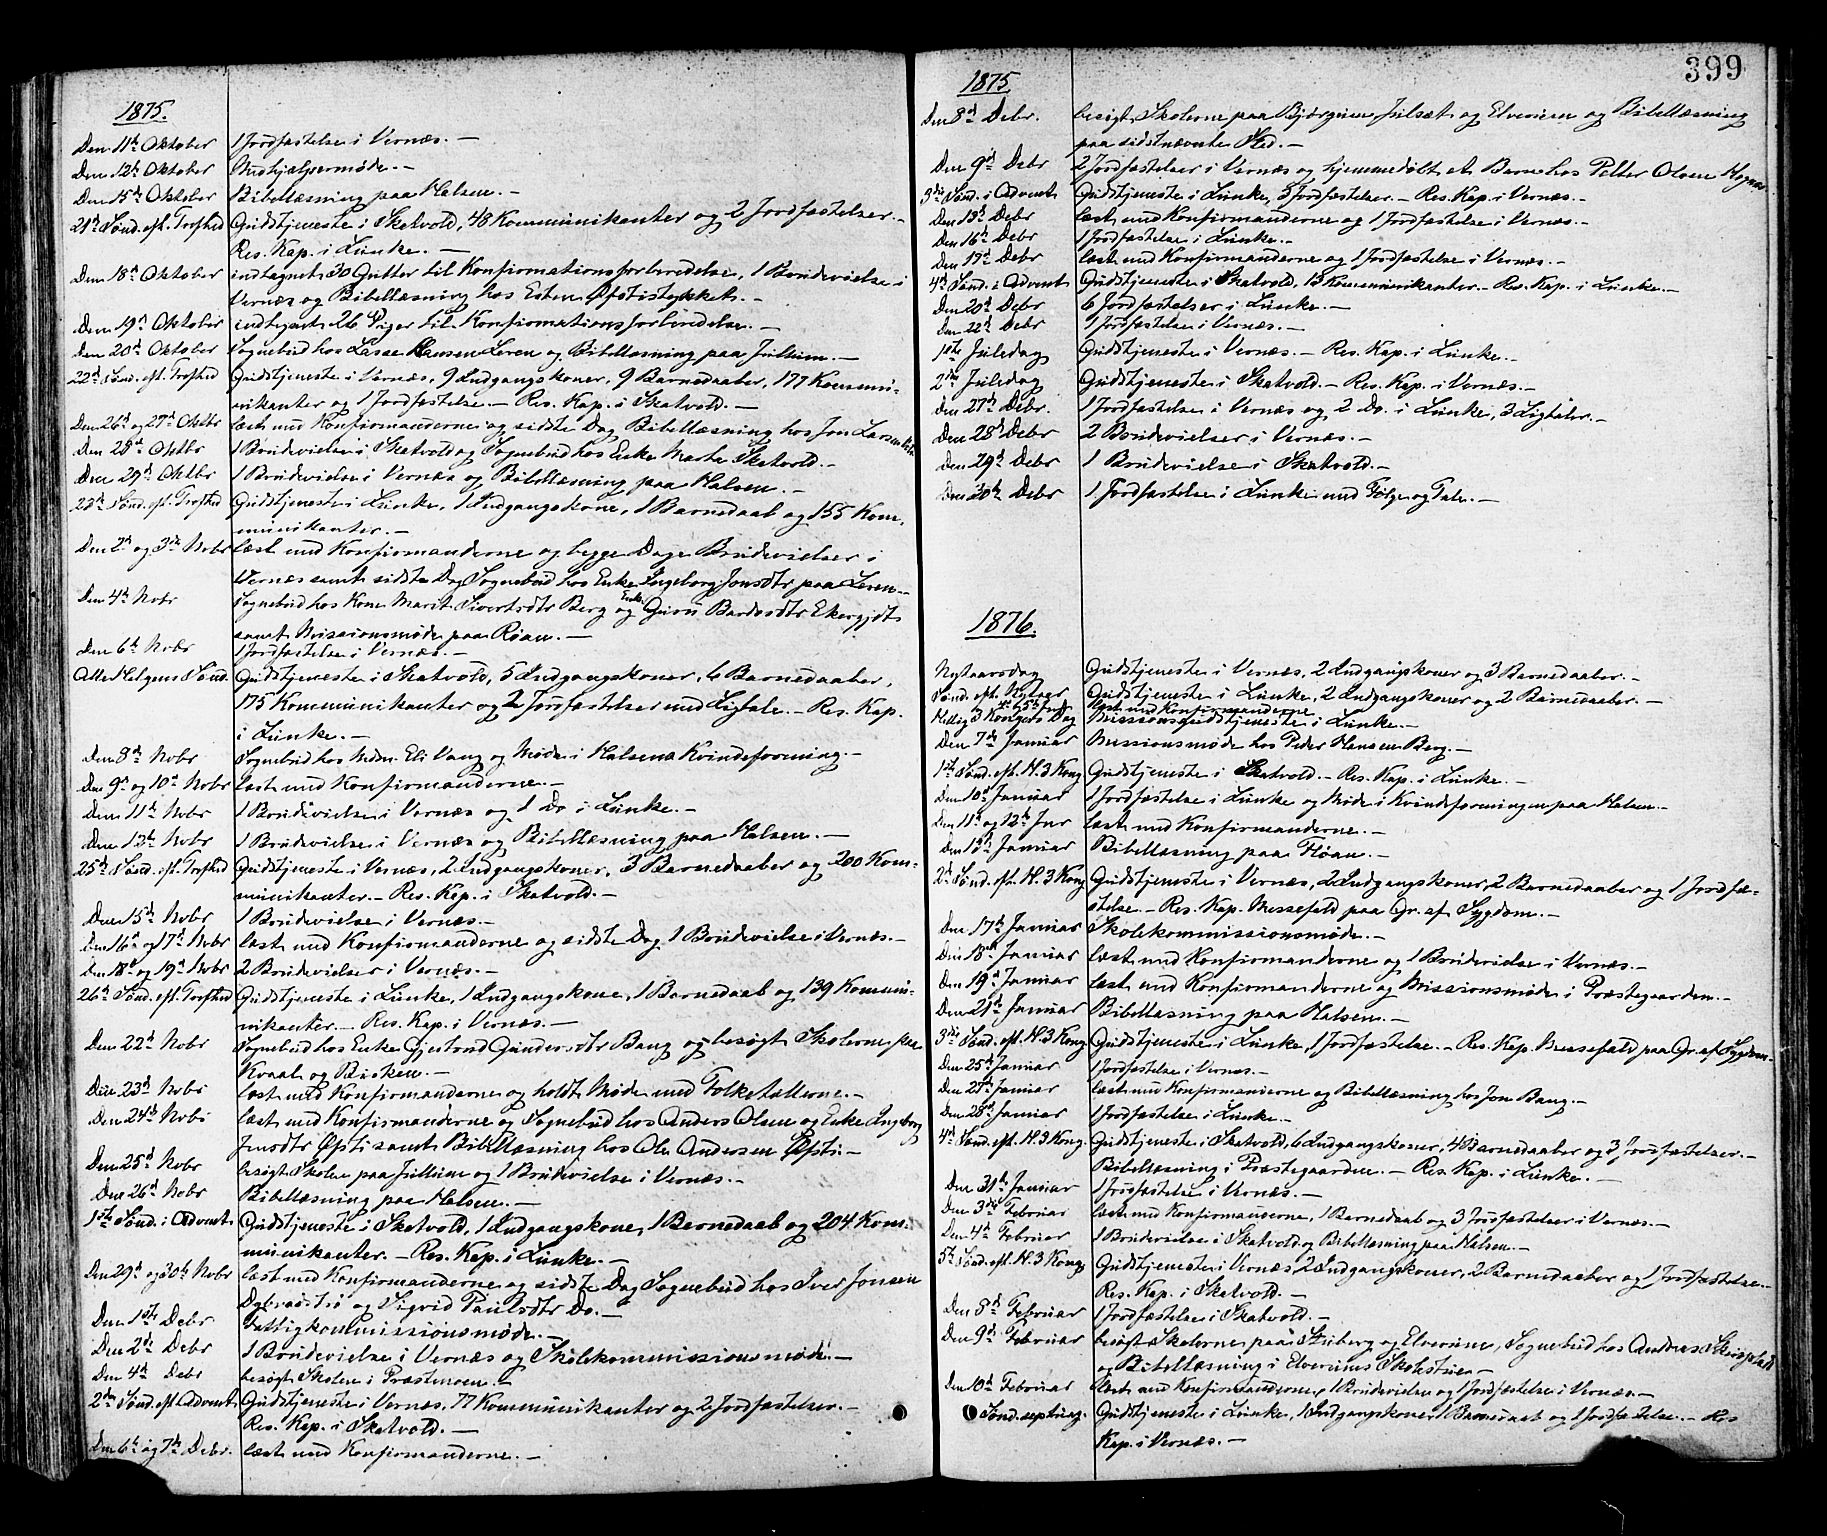 1875.
Den 11te Oktober 1 Jordfæstelse i Vernæs. —
Den 12te Oktober Medhjælpermøde. —
Den 15de Oktober Bibellæsning paa Halsen. —
21de Sønd. eft. Trefhed Gudstjeneste i Skatvold, 48 Kommunikanter og 2 Jordfæstelser. —
Res. Kap. i Lunke. —
Den 18de Oktober indtegnet 30 Gutter til Konfirmationsforberedelse, 1 Brudevielse i
Vernæs og Bibellæsning hos Esten Øfstistykket. —
Den 19de Oktober indtegnet 26 Piger til Konfirmationsforberedelse. —
Den 20de Oktober Sognebud hos Lasse Hansen Leren og Bibellæsning paa Jullum. —
22de Sønd. eft. Trefhed Gudstjeneste i Vernæs, 9 Indgangskoner, 9 Barnedaaber, 177 Kommu-
nikanter og 1 Jordfæstelse. — Res. Kap. i Skatvold. —
Den 26de og 27de Oktbr læst med Konfirmanderne og sidste Dag Bibellæsning hos Jon Larsen
Den 28de Oktbr 1 Brudevielse i Skatvold og Sognebud hos Enke Marte Skatvold. —
Den 29de Oktbr 1 Brudevielse i Vernæs og Bibellæsning paa Halsen. —
23de Sønd. eft. Trefhed Gudstjeneste i Lunke, 1 Indgangskone, 1 Barnedaab og 155 Kom-
munikanter. —
Den 2de og 3die Nobr læst med Konfirmanderne og begge Dage Brudevielser i
Vernæs samt sidste Dag Sognebud hos Enke Ingeborg Jonsdtr paa Leren. —
Den 4de Nobr Sognebud hos Kone Marit Sivertsdtr Berg og Enke Guru Bardosdtr
samt Missionsmøde paa Røan. —
Den 6te Nobr 1 Jordfæstelse i Vernæs. —
Alle Helgens Sønd. Gudstjeneste i Skatvold, 5 Indgangskoner, 6 Barnedaaber,
175 Kommunikanter og 2 Jordfæstelser med Ligtale. — Res. Kap.
i Lunke. —
Den 8de Nobr Sognebud hos Madm. Eli Vang og Møde i Halsens Kvindeforening. —
Den 9de og 10de Nobr læst med Konfirmanderne. —
Den 11te Nobr 1 Brudevielse i Vernæs og 1 Do i Lunke. —
Den 12te Nobr 1 Brudevielse i Vernæs og Bibellæsning paa Halsen. —
25de Sønd. eft. Trefhed Gudstjeneste i Vernæs, 2 Indgangskoner, 3 Barnedaaber og 200 Kom-
munikanter. — Res. Kap. i Skatvold. —
Den 15de Nobr 1 Brudevielse i Vernæs. —
Den 16de og 17de Nobr læst med Konfirmanderne og sidste Dag 1 Brudevielse i Vernæs. —
Den 18de og 19de Nobr 2 Brudevielser i Vernæs. —
26de Sønd. eft. Trefhed Gudstjeneste i Lunke, 1 Indgangskone, 1 Barnedaab og 139 Kommu-
nikanter. — Res. Kap. i Vernæs. —
Den 22de Nobr Sognebud hos Enke Gjertrud Gundersdtr Bang og besøgt Skolerne paa
Kvaal og Birken. —
Den 23de Nobr læst med Konfirmanderne og holdt Møde med Folketællerne. —
Den 24de Nobr læst med Konfirmanderne og Sognebud hos Anders Olsen og Enke Ingeborg
Jensdtr Øfsti samt Bibellæsning hos Ole Andersen Øfsti. —
Den 25de Nobr besøgt Skolen paa Jullum og 1 Brudevielse i Vernæs. —
Den 26de Nobr Bibellæsning paa Halsen. —
1ste Sønd. i Advent Gudstjeneste i Skatvold, 1 Indgangskone, 1 Barnedaab og 204 Kom-
munikanter. — Res. Kap. i Lunke. —
Den 29de og 30te Nobr læst med Konfirmanderne og sidste Dag Sognebud hos Iver Jonsen
Dybvadstrø og Sigrid Paulsdtr Do. —
Den 1ste Debr Fattigkommissionsmøde. —
Den 2den Debr 1 Brudevielse i Vernæs og Skolekommissionsmøde. —
Den 4de Debr besøgt Skolen i Præstmoen. —
2den Sønd. eft. Advent Gudstjeneste i Vernæs, 77 Kommunikanter og 2 Jordfæstelser. —
Res. Kap. i Skatvold. —
Den 6te og 7de Debr. læst med Konfirmanderne. —
399
1875
Den 8de Debr. besøgt Skolerne paa Bjørgum, Julset og Elverum og Bibellæsning
paa sidstnævnte Sted. —
Den 9de Debr 2 Jordfæstelser i Vernæs og hjemmedøbt et Barn hos Petter Olsen
3die Sønd. i Advent Gudstjeneste i Lunke, 5 Jordfæstelser. — Res. Kap. i Vernæs. —
Den 13de Debr læst med Konfirmanderne og 1 Jordfæstelse i Vernæs. —
Den 16de Debr 1 Jordfæstelse i Lunke. —
Den 17de Debr læst med Konfirmanderne og 1 Jordfæstelse i Vernæs. —
4de Sønd. i Advent Gudstjeneste i Skatvold, 13 Kommunikanter. — Res. Kap. i Lunke. —
Den 20de Debr 6 Jordfæstelser i Lunke. —
Den 22de Debr 1 Jordfæstelse i Vernæs. —
1ste Juledag Gudstjeneste i Vernæs. — Res. Kap. i Lunke. —
2den Juledag Gudstjeneste i Skatvold. — Res. Kap. i Vernæs. —
Den 27de Debr. 1 Jordfæstelse i Vernæs og 2 Do. i Lunke, 3 Ligtaler. —
Den 28de Debr 2 Brudevielser i Vernæs. —
Den 29de Debr 1 Brudevielse i Skatvold. —
Den 30te Debr 1 Jordfæstelse i Lunke med Følge og Tale. —
1876.
Nytaarsdag Gudstjeneste i Vernæs, 2 Indgangskoner og 3 Barnedaaber. —
Sønd. eft. Nytaar Gudstjeneste i Lunke, 2 Indgangskoner og 2 Barnedaaber. —
læst med Konfirmanderne
Hellig 3 Kongers Dag Missionsgudstjeneste i Lunke. —
Den 7de Januar Missionsmøde hos Peder Hansen Berg. —
1ste Sønd. eft. H. 3 Kong Gudstjeneste i Skatvold. — Res. Kap. i Lunke. —
Den 10de Januar 1 Jordfæstelse i Lunke og Møde i Kvindeforeningen paa Halsen. —
Den 11te og 12te Jnr læst med Konfirmanderne. —
Den 13de Januar Bibellæsning paa Fløan. —
2den Sønd. eft. H. 3 Kong Gudstjeneste i Vernæs, 2 Indgangskoner, 2 Barnedaaber og 1 Jordfæ-
stelse. — Res. Kap. Messefald paa Gr. af Sygdom. —
Den 17de Januar Skolekommissionsmøde. —
Den 18de Januar læst med Konfirmanderne og 1 Brudevielse i Vernæs. —
Den 19de Januar læst med Konfirmanderne og Missionsmøde i Præstegaarden. —
Den 21de Januar Bibellæsning paa Halsen. —
3die Sønd. eft. H. 3 Kong Gudstjeneste i Lunke, 1 Jordfæstelse. — Res. Kap. Messefald paa Gr. af Sygdom. —
Den 25de Januar 1 Jordfæstelse i Vernæs. —
Den 27de Januar læst med Konfirmanderne og Bibellæsning hos Jon Bang. —
Den 28de Januar 1 Jordfæstelse i Lunke. —
4de Sønd. eft. H. 3 Kong. Gudstjeneste i Skatvold, 6 Indgangskoner, 4 Barnedaaber og 3 Jordfæstelser. —
Bibellæsning i Præstegaarden. — Res. Kap. i Lunke. —
Den 31te Januar 1 Jordfæstelse i Vernæs. —
Den 3die Februar læst med Konfirmanderne, 1 Barnedaab og 3 Jordfæstelser i Vernæs. —
Den 4de Februar 1 Brudevielse i Skatvold og Bibellæsning paa Halsen. —
5te Sønd. eft. H. 3 Kong Gudstjeneste i Vernæs 2 Indgangskoner, 2 Barnedaaber og 1 Jordfæstelse. —
Res. Kap. i Skatvold. —
Den 8de Februar 1 Jordfæstelse i Skatvold. —
Den 9de Februar besøgt Skolerne paa Stuberg og Elverum, Sognebud hos Andreas
og Bibellæsning i Elverums Skolestue. —
Den 10de Februar læst med Konfirmanderne, 1 Brudevielse og 1 Jordfæstelse i Vernæs. —
Sønd. septuag. Gudstjeneste i Lunke, 1 Indgangskone, 1 Barnedaab og 1 Jordfæstelse. — Res
Kap. i Vernæs. —